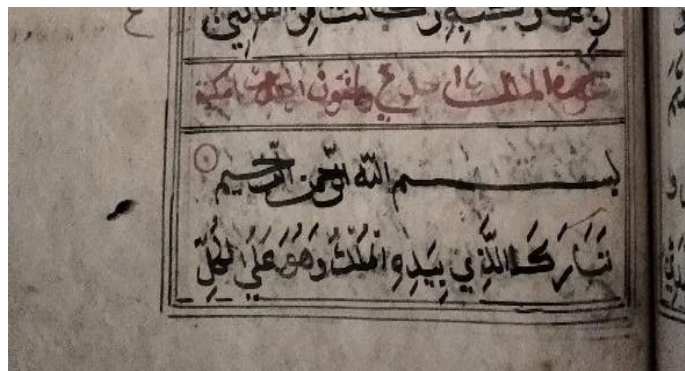 رَبِّهَا وَكُتُبِهِ وَكَانَتْ مِنَ الْقَانِتِينَ
سورة الملك وثلثون مكية
بسم الله الرّحمن الرّحيم
تَبَارَكَ الَّذِي بِيَدِهِ الْمُلْكُ وَهُوَ عَلَى كُلِّ